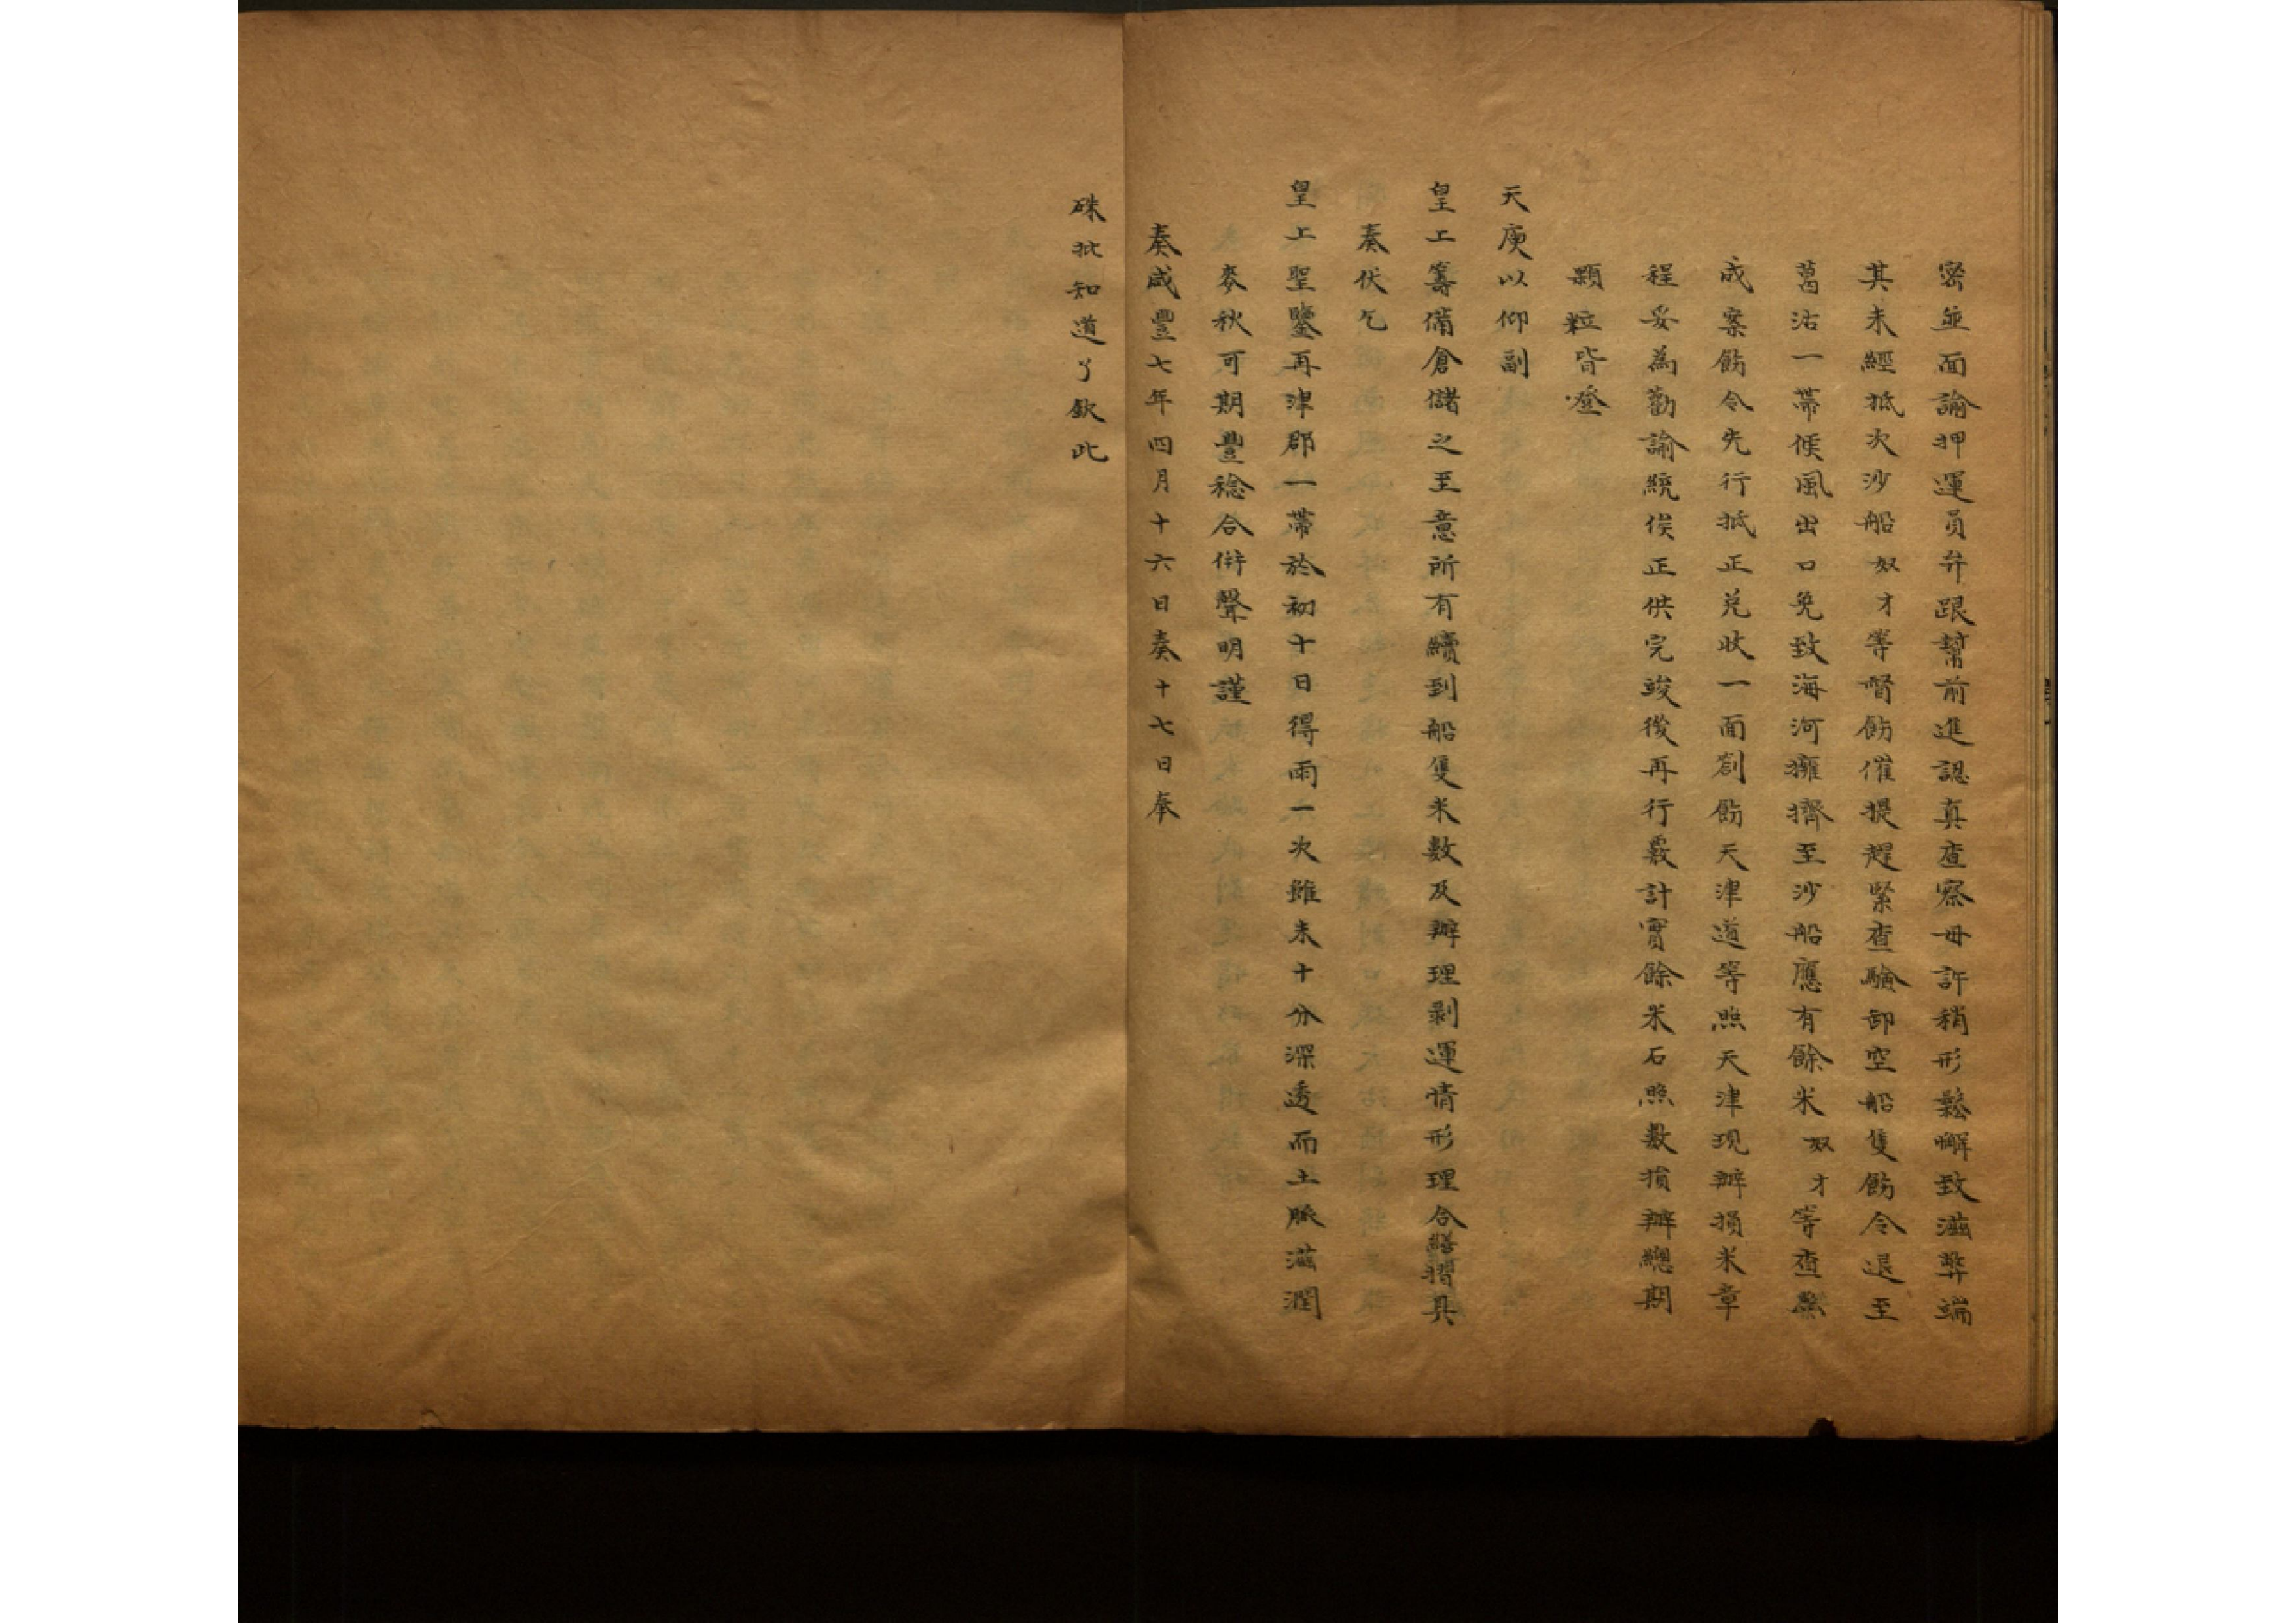 密並面諭押運員弁跟幫前進認真查察毋許稍形鬆懈致滋弊端
其未經抵次沙船奴才等督飭催提趕緊查驗卸空船隻飭令退至
葛沽一帶候風出口免致海河擁擠至沙船應有餘米奴才等查照
成案飭令先行抵正兌收一面劄飭天津道等照天津現辦損米章
程妥為勸諭統俟正供完竣後再行覈計實餘米石照數損辦總期
顆粒皆登
天庾以仰副
皇上籌備倉儲之至意所有續到船隻米數及辦理剥運情形理合繕摺具
奏伏乞
皇上聖鑒再津郡一帶於初十日得雨一次雖未十分深透而土脈滋潤
麥秋可期豐稔合併聲明謹
奏咸豐七年四月十六日奏十七日奉
硃批知道了欽此